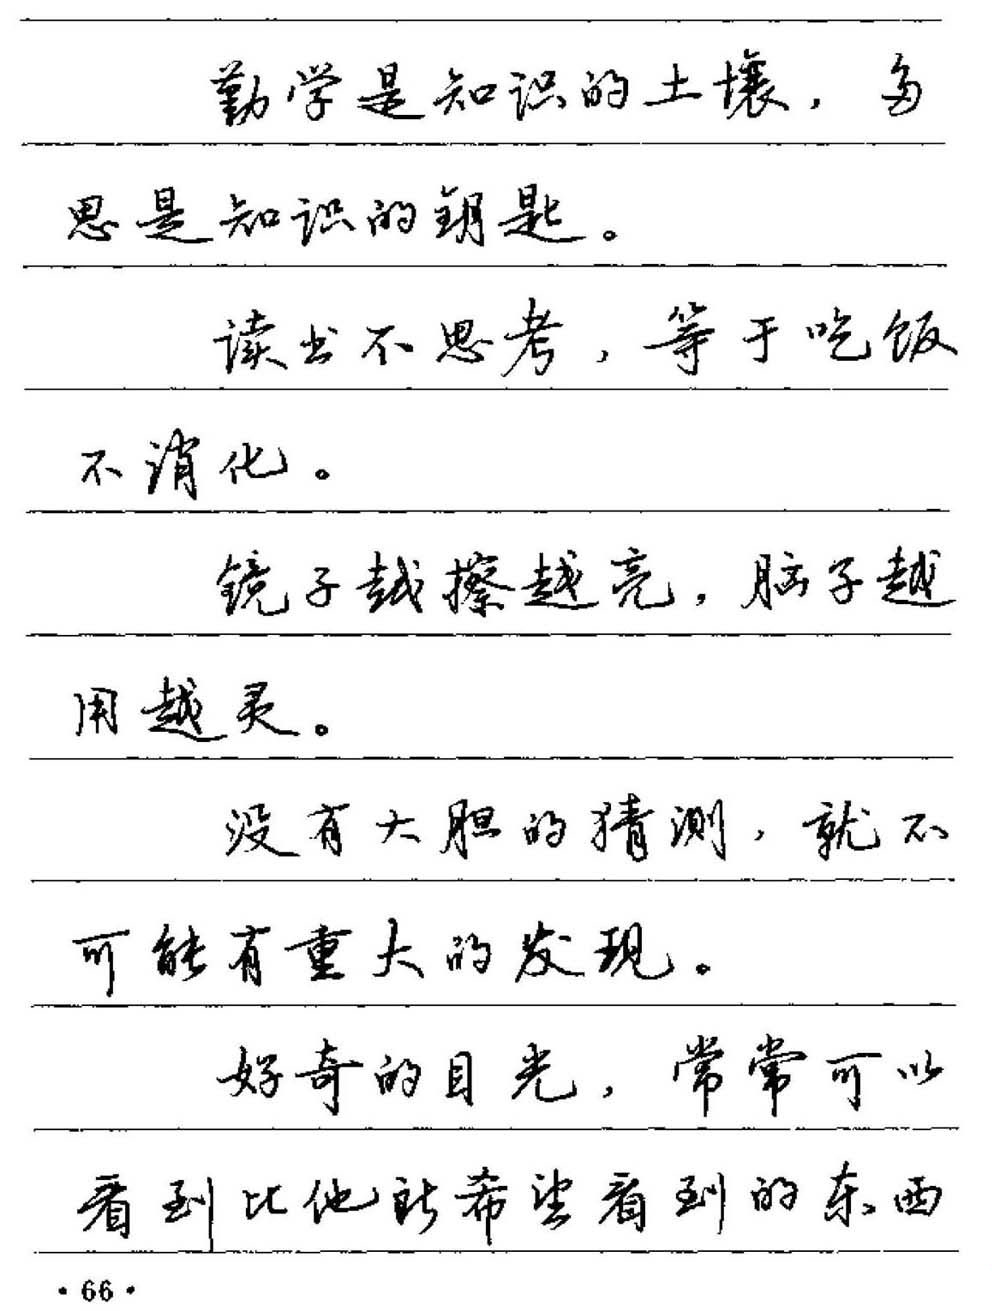 勤学是知识的土壤，多
思是知识的钥匙。
读书不思考，等于吃饭
不消化。
镜子越擦越亮，脑子越
用越灵。
没有大胆的猜测，就不
可能有重大的发现。
好奇的目光，常常可以
看到比他所希望看到的东西
·66·